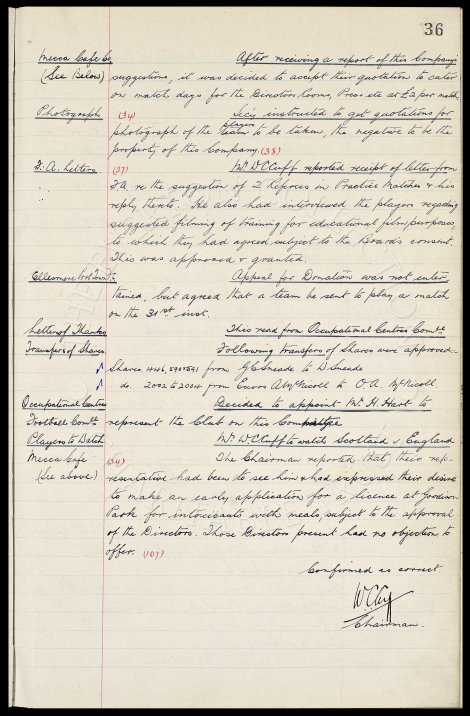 36
Mecca Cafe Co After receiving a report of this Company's
(See Below) suggestions, it was decided to accept their quotation to cater
on match days for the Directors Rooms, Press etc at £2 per match.
Photograph (34) Secy instructed to get quotations for
photograph of the players to be taken, the negative to be the
property of this Company. (38)
F.A. Letters (27) Mr W C Cuff reported receipt of letter from
F.A. re the suggestion of 2 Referees in Practice Matches & his
reply thereto. He also had interviewed the players regarding
suggested filming of training for educational film purposes,
to which they had agreed subject to the Boards consent.
This was approved & granted.
Ellesmere Port Town F.C. Appeal for Donation was not enter-
tained, but agreed that a team be sent to play a match
on the 31st inst.
Letter of Thanks This read from Occupational Centres Comtt.
Transfers of Shares Following transfers of Shares were approved:-
Shares 446, 590 & 591 from G C Sneade to D Sneade
do. 2002 to 2004 from Exors A McNicoll to O.A. McNicoll.
Occupational Centre Decided to appoint Mr. H. Hart to
Football Comtt represent the Club on this
Players to Watch Mr. W C Cuff to watch Scotland v England
Mecca Cafe (34) The Chairman reported that their rep-
(See above) resentative had been to see him & had expressed their desire
to make an early application for a license at Goodison
Park for intoxicants with meals, subject to the approval
of the Directors. Those Directors present had no objection to
offer. (107)
Confirmed as correct.
W.C. Cuff
Chairman.